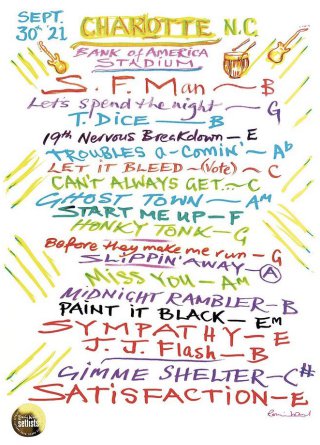 SEPT.
30th 21
CHARLOTTE N.C
BANK of AMERICA
STADIUM
S. F. Man — B
Let's Spend the night — G
T. DICE — B
19th Nervous Breakdown — E
TROUBLES a-Comin' — Ab
LET IT BLEED — (Vote) — C
CAN'T ALWAYS GET — C
GHOST TOWN — Am
START ME UP — F
HONKY TONK — G
Before they make me run — G
SLIPPIN' AWAY — A
MISS YOU — Am
MIDNIGHT RAMBLER — B
PAINT IT BLACK — Em
SYMPATHY — E
J. J. Flash — B
GIMME SHELTER — C#
SATISFACTION — E
setlists